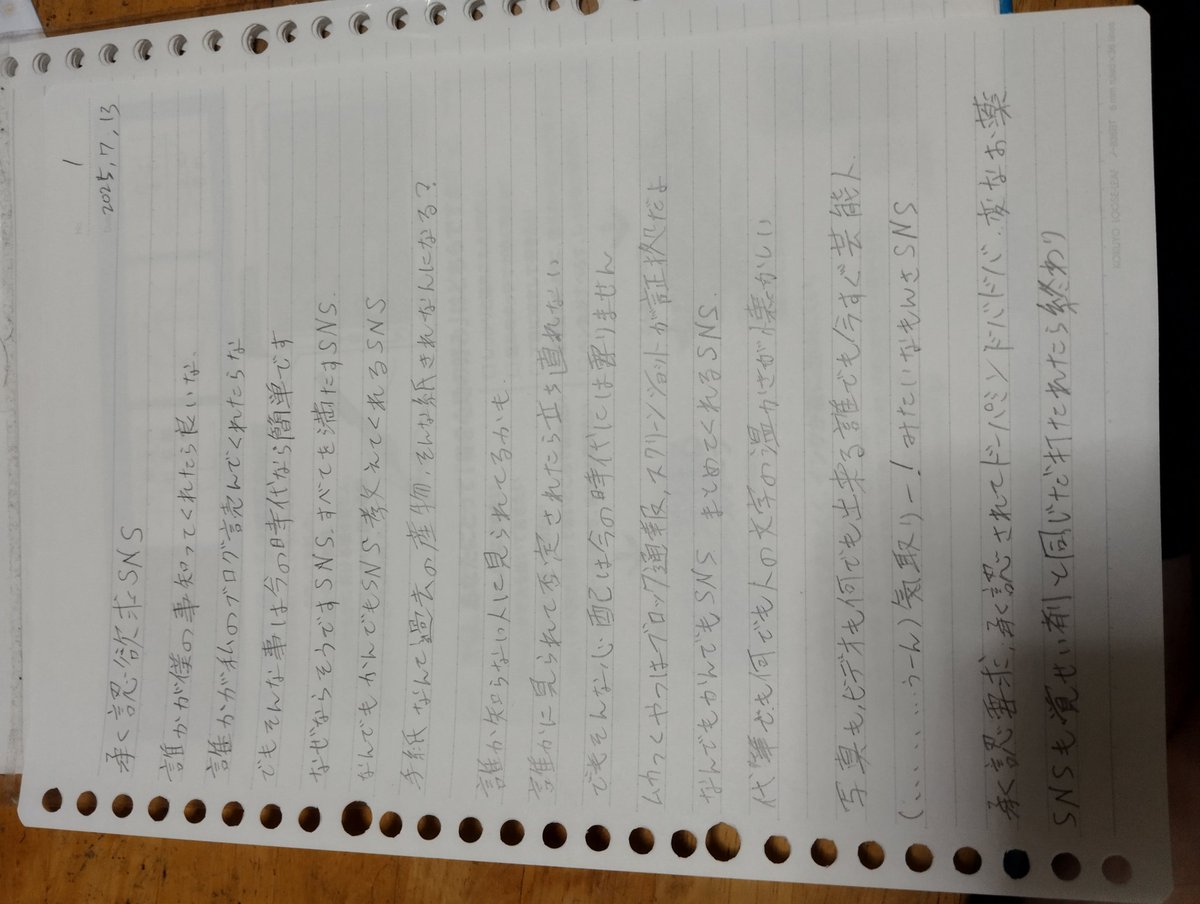 1
2025,7,13
承く認欲求SNS
誰かが僕の事知ってくれたら良いな.
誰かが私のブログ読んでくれたらな
でもそんな事は今の時代なら簡単です
なぜならそうですSNS.すべてを満たすSNS.
なんでもかんでもSNS.教えてくれるSNS
手紙なんて過去の産物.そんな紙きれなんになる?
誰か知らない人に見られてるかも.
誰かに見られて否定されたら立ち直れない
でもそんな心配は今の時代には要りません
ムカつくやつはブロック通報,スクリーンショットが証拠だよ
なんでもかんでもSNS まとめてくれるSNS.
代筆でも何でも人の文字の温かさが懐かしい
写真も,ビデオも何でも出来る誰でも今すぐ芸能人.
(…………うーん)気取りー!みたいなもんさSNS
承く認要求,承く認されてドーパミンドバドバ.変なお薬
SNSも覚せい剤と同じだ打たれたら終わり
No.
KOKUYO LOOSE-LEAF